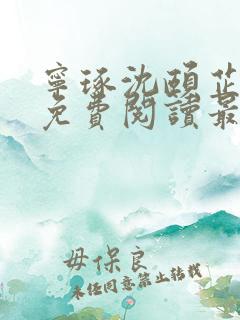 寧琢沈頤芷
免費閱讀最
毋保良
未经同意禁止转载